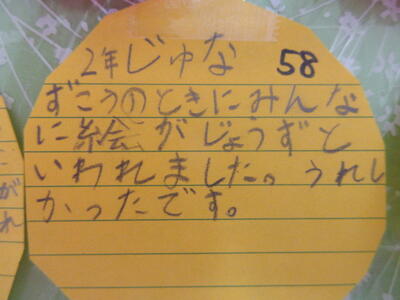 2年じゅな 58
ずこうのときにみんな
に絵がじょうずと
いわれました。うれし
かったです。
がれ